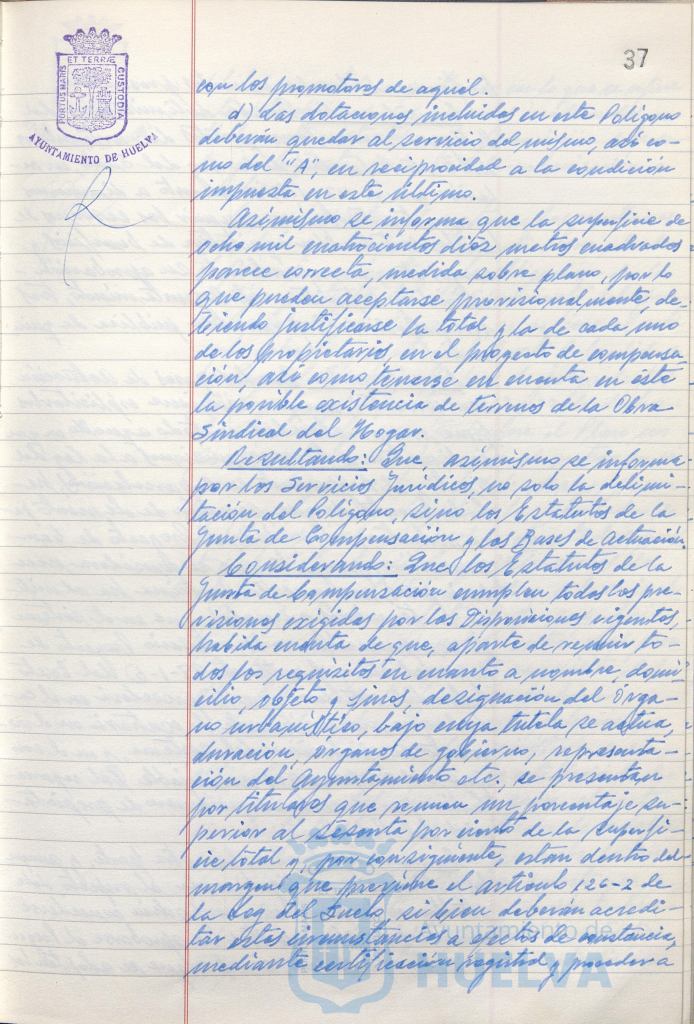 37
ET TERRÆ
PORTUS MARIS
CUSTODIA
AYUNTAMIENTO DE HUELVA
con los promotores de aquél.
d) Las dotaciones incluidas en este Polígono
deberán quedar al servicio del mismo, así co-
mo del "A", en reciprocidad a la condición
impuesta en este último.
Asimismo se informa que la superficie de
ocho mil cuatrocientos diez metros cuadrados
parece correcta, medida sobre plano, por lo
que pueden aceptarse provisionalmente, de-
biendo justificarse la total y la de cada uno
de los propietarios, en el proyecto de compensa-
ción, así como tenerse en cuenta en este
la posible existencia de terrenos de la Obra
Sindical del Hogar.
Resultando: Que, asimismo se informa
por los Servicios Jurídicos, no solo la delimi-
tación del Polígono, sino los Estatutos de la
Junta de Compensación y las Bases de Actuación.
Considerando: Que los Estatutos de la
Junta de Compensación cumplen todas las pre-
visiones exigidas por las Disposiciones vigentes,
habida cuenta de que, aparte de reunir to-
dos los requisitos en cuanto a nombre, domi-
cilio, objeto y fines, designación del Órga-
no urbanístico, bajo cuya tutela se actúa,
duración, órganos de gobierno, representa-
ción del Ayuntamiento etc., se presentan
por titulares que reunen un porcentaje su-
perior al sesenta por ciento de la superfi-
cie total y, por consiguiente, estan dentro del
margen que previene el artículo 126-2 de
la Ley del Suelo, si bien deberán acredi-
tar estas circunstancias a efectos de constancia,
mediante certificación registral y proceder a
Ayuntamiento de
HUELVA